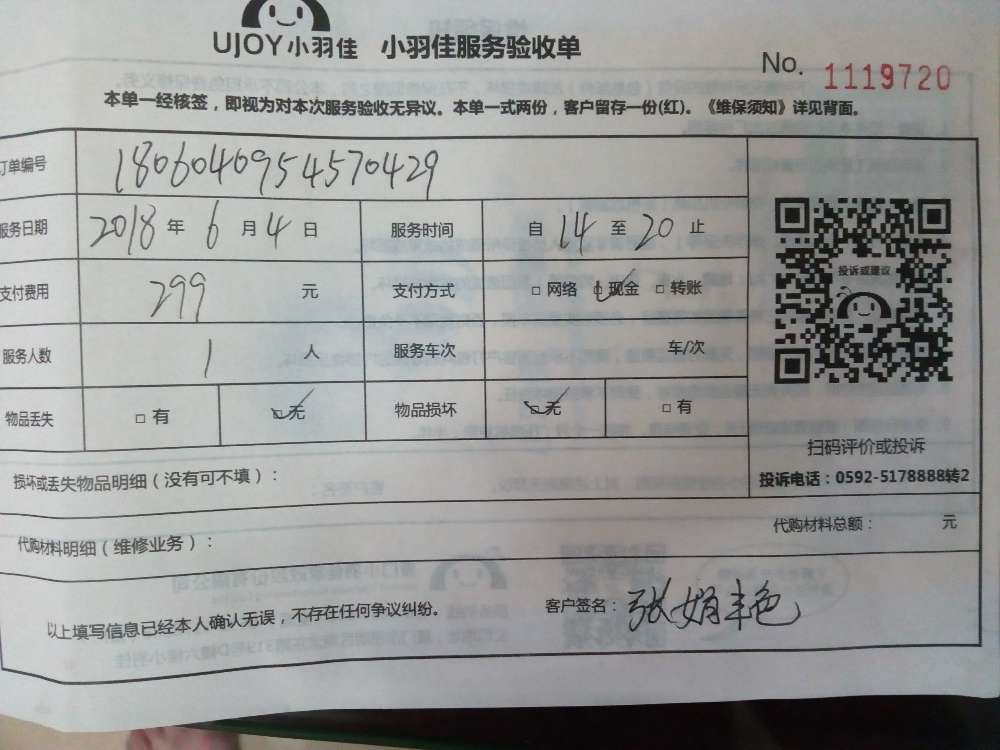 UJOY小羽佳 小羽佳服务验收单
No. 1119720
本单一经核签，即视为对本次服务验收无异议。本单一式两份，客户留存一份(红)。《维保须知》详见背面。
订单编号 1806040954570429
服务日期 2018 年 6 月 4 日 服务时间 自 14 至 20 止
投诉或建议
支付费用 299 元 支付方式 □ 网络 □ 现金 □ 转账
服务人数 1 人 服务车次 车/次
物品丢失 □ 有 □ 无 物品损坏 □ 无 □ 有
扫码评价或投诉
投诉电话：0592-5178888转2
损坏或丢失物品明细（没有可不填）：
代购材料明细（维修业务）： 代购材料总额： 元
以上填写信息已经本人确认无误，不存在任何争议纠纷。 客户签名：张娟